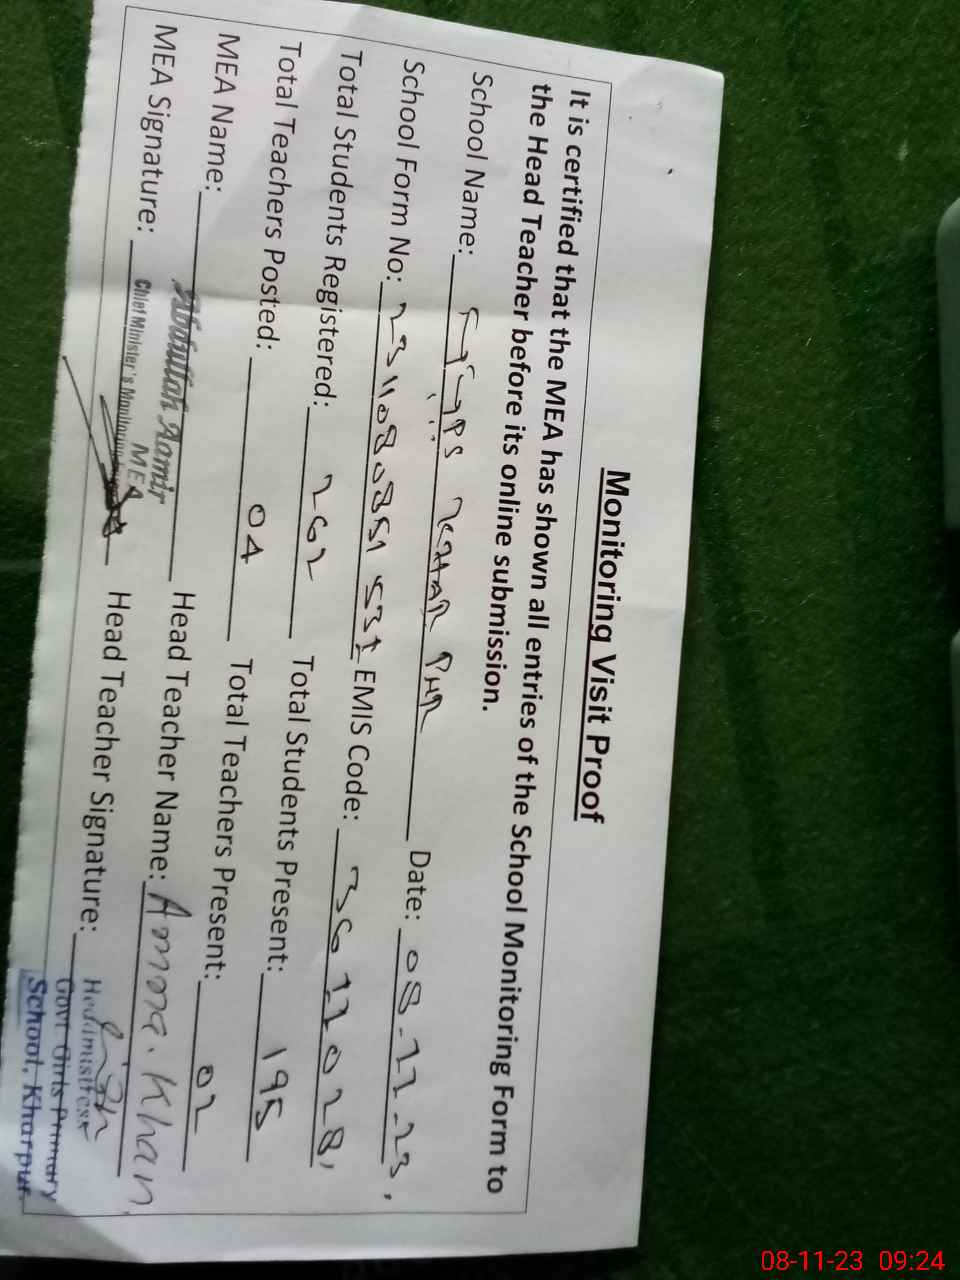 Monitoring Visit Proof
It is certified that the MEA has shown all entries of the School Monitoring Form to
the Head Teacher before its online submission.
School Name: GGPS Date: 08-11-23
School Form No: EMIS Code: 36111028
Total Students Registered: 262 Total Students Present: 195
Total Teachers Posted: 04 Total Teachers Present: 02
MEA Name: Abdullah Aamir Head Teacher Name: Amna Khan
MEA
MEA Signature: Chief Minister's Monitoring Head Teacher Signature:
Hedimistress
Govt Girls Primary
School, Kharpur
08-11-23 09:24